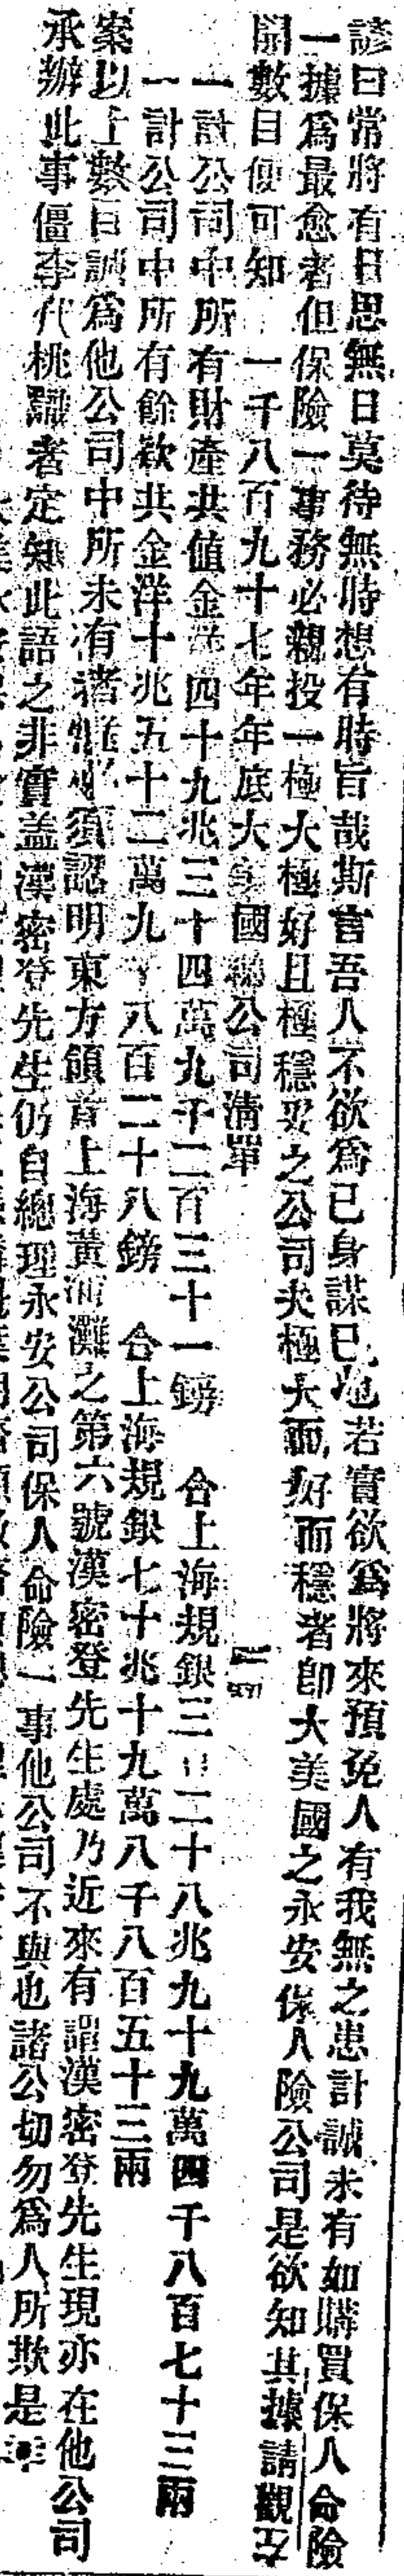 諺曰常將有日思無日莫待無時想有時旨哉斯言吾人不欲爲已身謀已也若實欲爲將來預免人有我無之患計誠未有如購買保人命險
一據爲最愈者但保險一事務必親投一極大極好且極穩妥之公司夫極大而好而穩者卽大美國之永安保人險公司是欲知其據請觀左
開數目便可知 一千八百九十七年年底大美國總公司清單
一計公司中所有財產共値金洋四十九兆三十四萬九千二百三十一鎊 合上海規銀三百二十八兆九十九萬四千八百七十三兩
一計公司中所有餘欵共金洋十兆五十二萬九千八百二十八鎊 合上海規銀七十兆十九萬八千八百五十三兩
案以上數目誠爲他公司中所未有者 須認明東方領首上海黃浦灘之第六號漢密登先生處乃近來有謂漢密登先生現亦在他公司
承辦此事僵李代桃識者定知此語之非實蓋漢密登先生仍自總理永安公司保人命險一事他公司不與也諸公切勿爲人所欺是幸